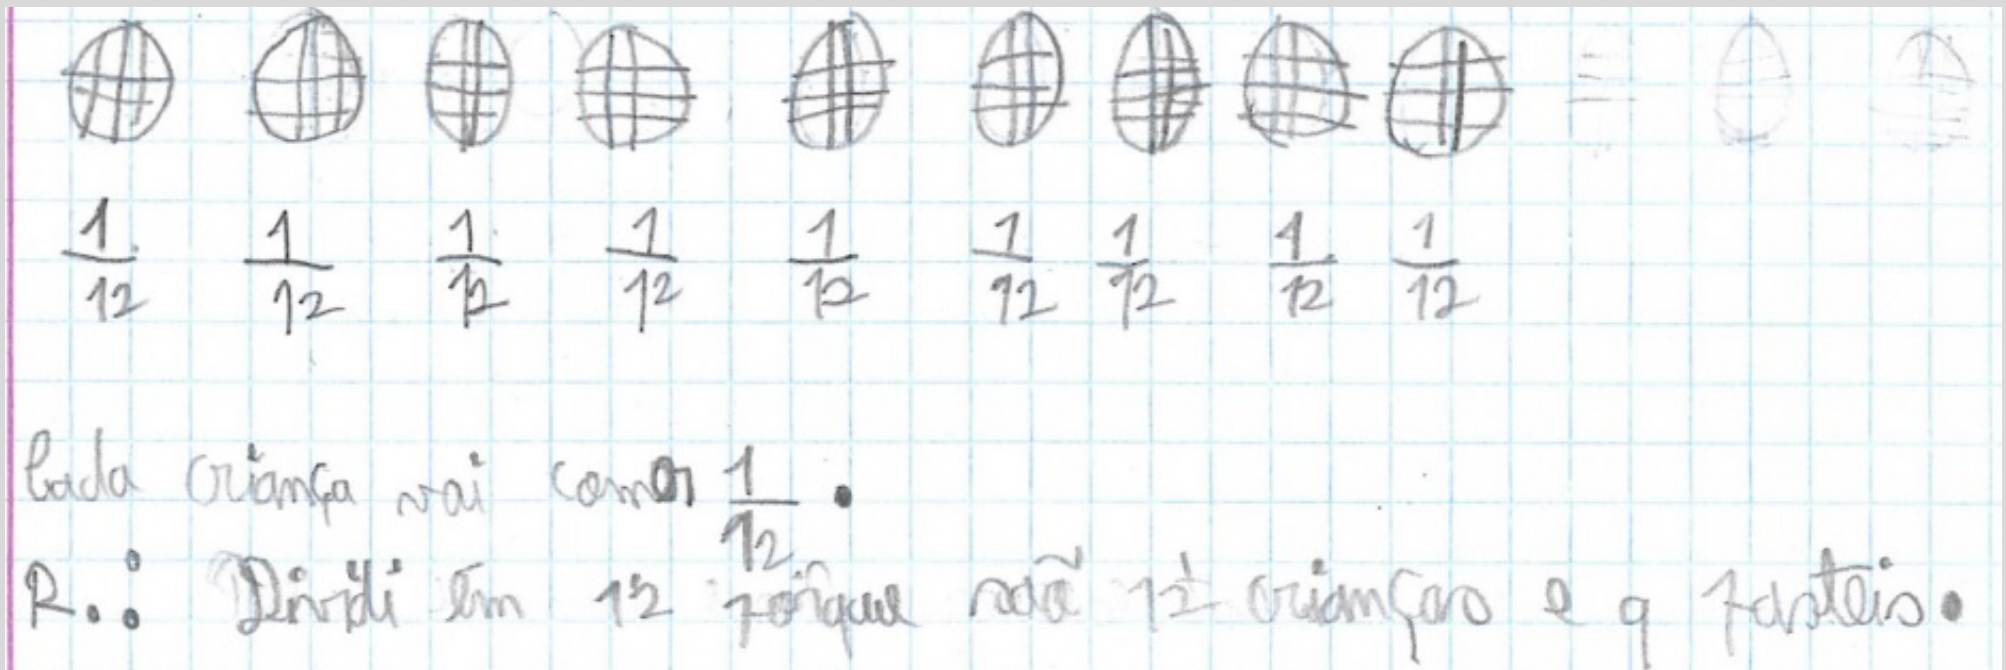 1/12 1/12 1/12 1/12 1/12 1/12 1/12 1/12 1/12
Cada criança vai comer 1/12.
R.: Dividi em 12 porque são 12 crianças e 9 pasteis.